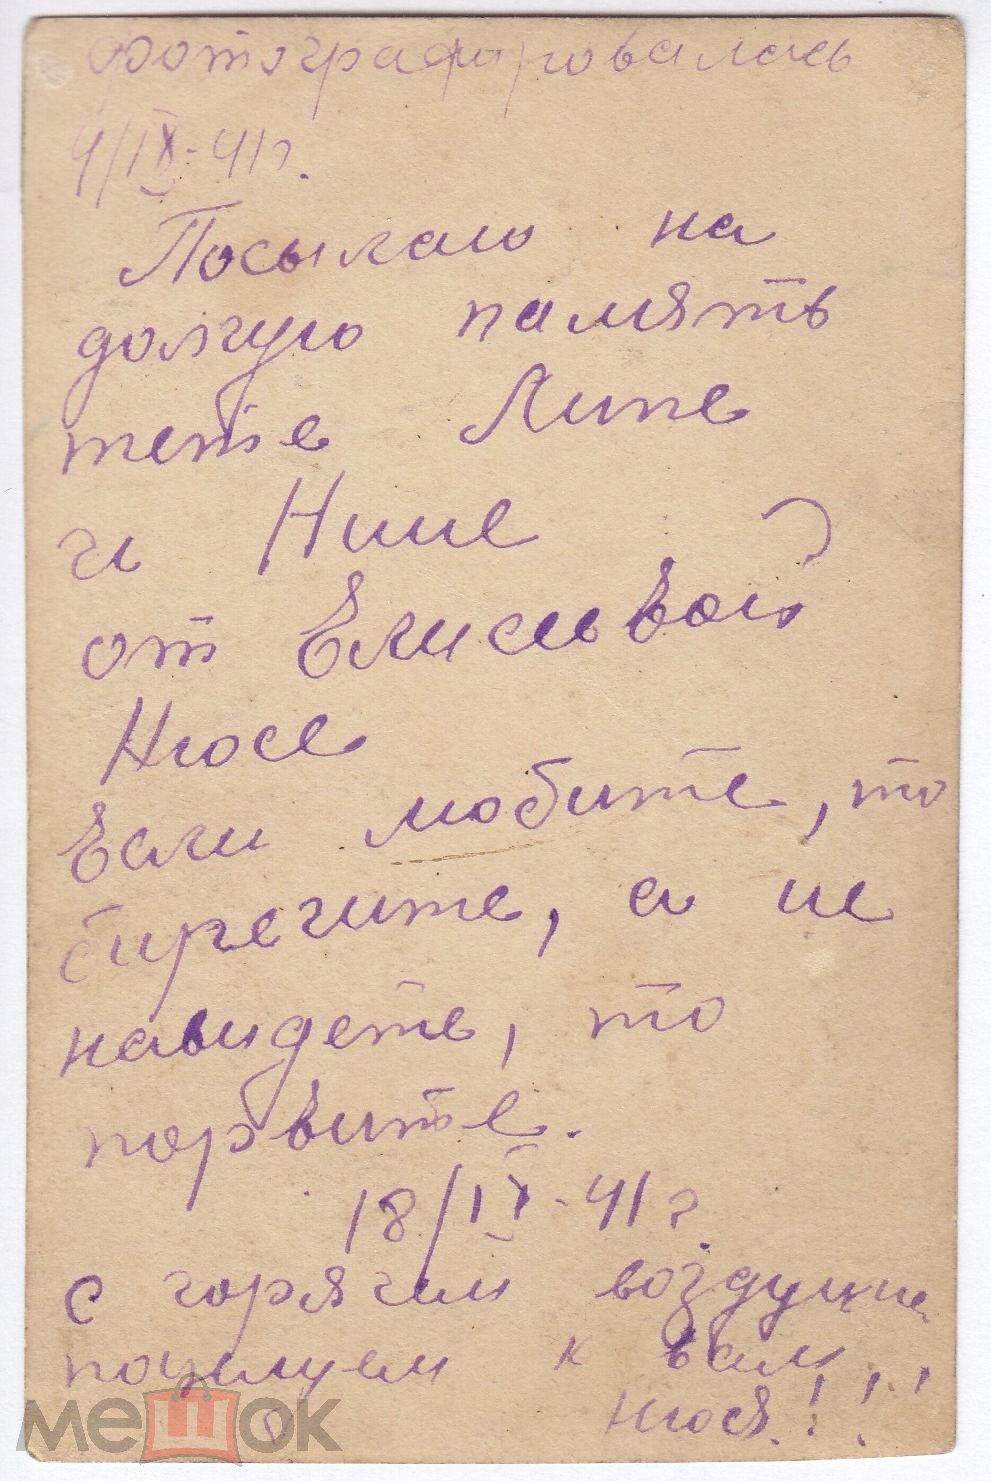 фотографировалась
4/IX-41г.
Посылаю на
долгую память
тете Липе
и Нине
от Елисевой
Нюсе
Если любите, то
биречите, а не
навидете, то
порвите.
18/IX-41г.
с горячем воздушне
поцелуем к вам,
Нюся!!!!
мешок